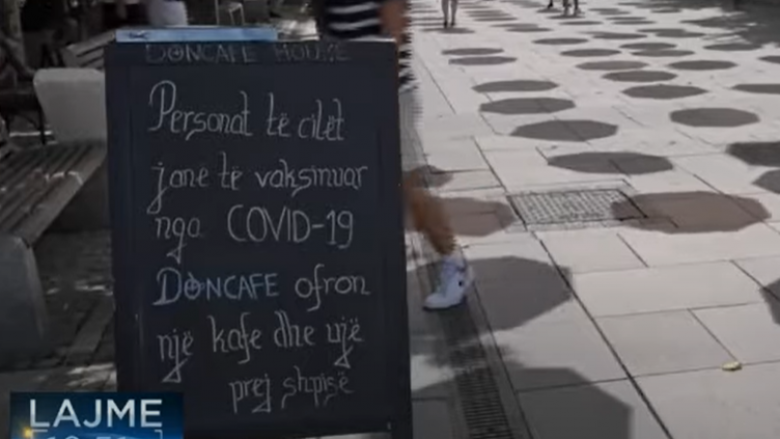 DONCAFE HOUSE
Personat të cilët
janë të vaksinuar
nga COVID-19
DONCAFE ofron
një kafe dhe ujë
prej shpisë
LAJME